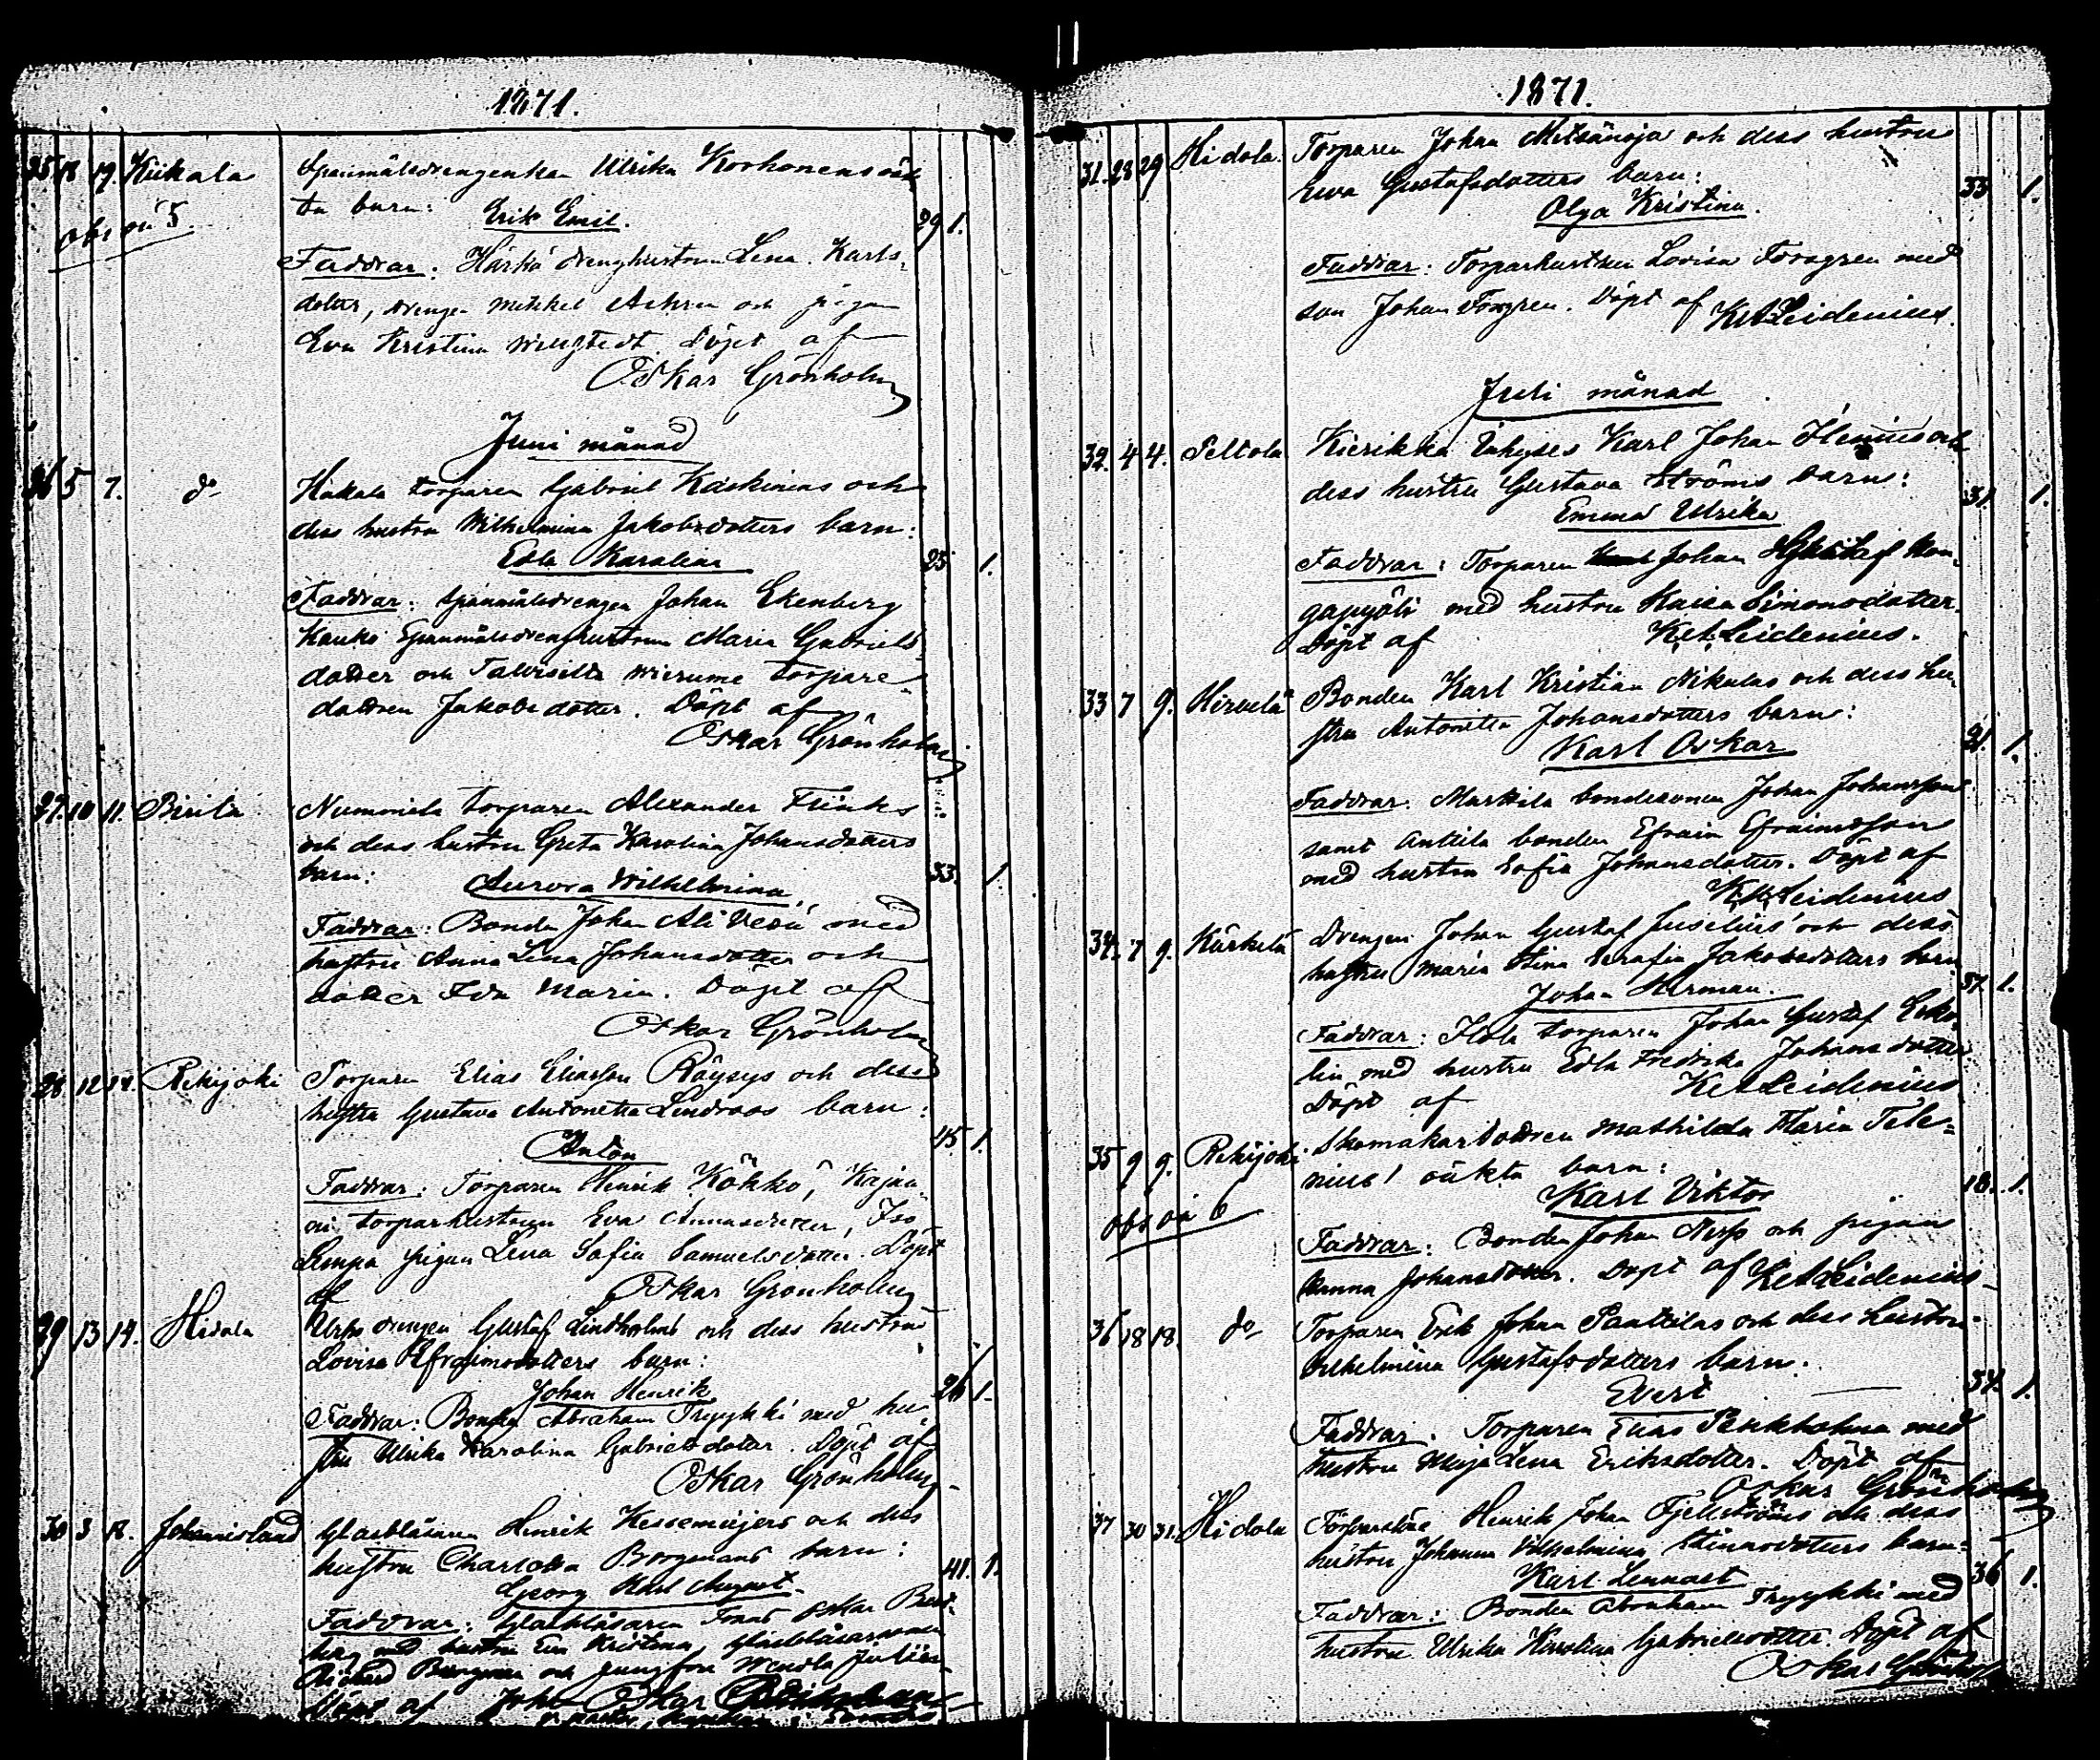 1871.
25 18 19. Kiikala Spanmålsdrengenkan Ulrika Korhonens oäk
ta barn: Erik Emil. 29 1.
obs oä 5.
Faddrar: Härkä drenghustrun Lena Karls-
dotter, drengen Mikkel och pigan
Eva Kristina Döpt af
Oskar Grönholm
Juni månad
26 5 7. do Hakala torparen Gabriel Kaskinens och
dess hustru Wilhelmina Jakobsdotters barn:
Edla Karolina 25 1.
Faddrar: Spanmålsdrengen Johan Ekenberg
Kauko Spanmålsdrenghustrun Maria Gabriels
dotter och torpare-
dottren Jakobsdotter. Döpt af
Oskar Grönholm
27. 10 11. Pirilä Nummela torparen Alexander Flinks
och dess hustru Greta Karolina Johansdotters
barn: Aurora Wilhelmina 33. 1
Faddrar: Bonden Johan Ali Vesa med
hustru Anna Lena Johansdotter och
dotter Ida Maria. Döpt af
Oskar Grönholm
28 12 14. Rekijoki Torparen Elias Eliasson Röysys och dess
hustru Gustava Antonetta Lindroos barn:
Anton 45. 1.
Faddrar: Torparen Henrik Kökkö,
torparhustrun Eva Iso
pigan Lena Sofia Samuelsdotter. Döpt
af Oskar Grönholm
29 13 14. Hidola drengen Gustaf Lindholms och dess hustrus
Lovisa Efraimsdotters barn:
Johan Henrik 26 1.
Faddrar: Bonden Abraham Tryykki med hu-
stru Ulrika Karolina Gabrielsdotter. Döpt af
Oskar Grönholm
30 3 18. Johannislund Glasblåsaren Henrik och dess
hustru Charlotta Borgmans barn:
Georg Karl August. 41. 1.
Faddrar: Glasblåsaren Frans Oskar
med hustru Eva Kristina, Glasblåsaren
Rickard och jungfru Wendla
Döpt af Johan Oskar
1871.
31. 28 29 Hidola. Torparen Johan Metsänoja och dess hustrus
Eva Gustafsdotters barn: 33 1.
Olga Kristina.
Faddrar: Torparhustrun Lovisa Forsgren med
son Johan Forsgren. Döpt af K. A. Leidenius.
Juli månad
32. 4 4. Peltola Kierikka Karl Johan och
dess hustru Gustava Ströms barn: 31. 1.
Emma Ulrika
Faddrar: Torparen Johan Gustaf Kon-
gapyöli med hustru Kaisa Simonsdotter.
Döpt af K. A. Leidenius.
33 7 9. Hirvelä Bonden Karl Kristian Nikulas och dess hu-
stru Antonetta Johansdotters barn: 21. 1.
Karl Oskar
Faddrar: Markila bondesonen Johan Johansson
samt Anttila bonden Efraim Efraimsson
med hustru Sofia Johansdotter. Döpt af
K. A. Leidenius
34. 7 9. Kärkelä Drengen Johan Gustaf Juselius' och dess
hustrus Maria Stina Serafia Jakobsdotters barn
Johan Herman. 37. 1.
Faddrar: torparen Johan Gustaf Ecke-
lin med hustru Edla Fredrika Johansdotter.
Döpt af K. A. Leidenius
35 9 9. Rekijoki Skomakardottren Mathilda Maria Tele-
nius' oäkta barn: 18. 1.
Karl Viktor
obs oä 6
Faddrar: Bonden Johan och pigan
Hanna Johansdotter. Döpt af K. A. Leidenius
36 18 18. do Torparen Erik Johan Panttilas och dess hustru
Wilhelmina Gustafsdotters barn.
Evert 34. 1.
Faddrar: Torparen Elias med
hustru Maja Lena Eriksdotter. Döpt af
Oskar Grönholm
37 30 31. Hidola Henrik Johan Fjellströms och dess
hustru Johanna Vilhelmina barn:
Karl Lennart 36 1.
Faddrar: Bonden Abraham Tryykki med
hustru Ulrika Karolina Gabrielsdotter. Döpt af
Oskar Grönholm